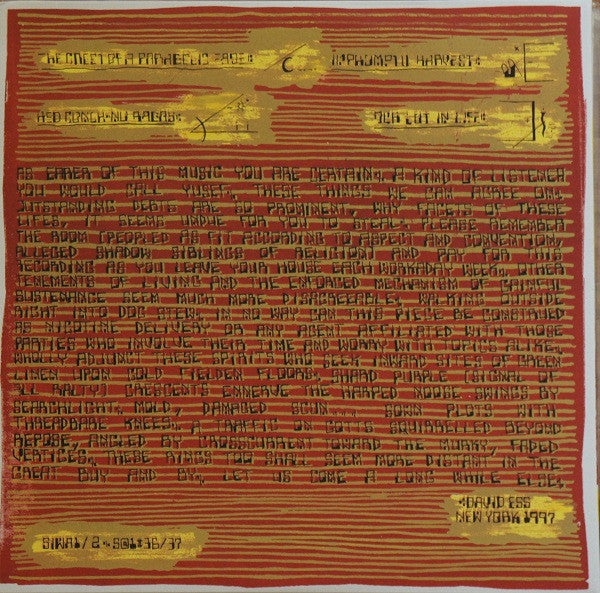 THE CREST OF A PARABOLIC
IMPROMPTU HARVEST
CUT IN
AS EARER OF THIS MUSIC YOU ARE CERTAIN, A KIND OF LISTENER
YOU WOULD CALL YUSEF. THESE THINGS WE CAN AGREE ON,
OUTSTANDING DEBTS ARE SO PROMINENT, WHY FACETS OF THESE
LIFES, IT SEEMS UNDUE FOR YOU TO STEAL. PLEASE REMEMBER
THE ROOM (PEOPLED AS FIT ACCORDING TO ASPECT AND CONVENTION,
ALLEGED SHADOW SIBLINGS OF RELIGION) AND PAY FOR THIS
RECORDING AS YOU LEAVE YOUR HOUSE EACH WORKADAY WEEK. OTHER
TENEMENTS OF LIVING AND THE ENFORCED MECHANISM OF GAINFUL
SUSTENANCE SEEM MUCH MORE DISAGREEABLE, WALKING OUTSIDE
RIGHT INTO DOG STEW. IN NO WAY CAN THIS PIECE BE CONSTRUED
AS NICOTINE DELIVERY OR ANY AGENT AFFILIATED WITH THOSE
PARTIES WHO INVOLVE THEIR TIME AND WORRY WITH TOPICS ALIKE.
WHOLLY ADJUNCT THESE SPIRITS WHO SEEK INWARD SITES OF GREEN
LINEN UPON COLD FIELDEN FLOORS. SHARD PURPLE (SIGNAL OF
ALL) CRESCENTS ENNERVE THE WARPED NOOSE SWINGS BY
SEARCHLIGHT. MOLD, DAMAGED SCON... SOWN PLOTS WITH
THREADBARE KNEES. A TRAFFIC ON COTTS SQUIRRELLED BEYOND
REPOSE, ANGLED BY CROSSCURRENT TOWARD THE MURKY, FADED
VERTICES. THESE RINGS TOO SHALL SEEM MORE DISTANT IN THE
GREAT BUY AND BY. LET US COME A LONG WHILE ELSE.
DAVID ESS
NEW YORK 1997
SIWA1/2 38/37